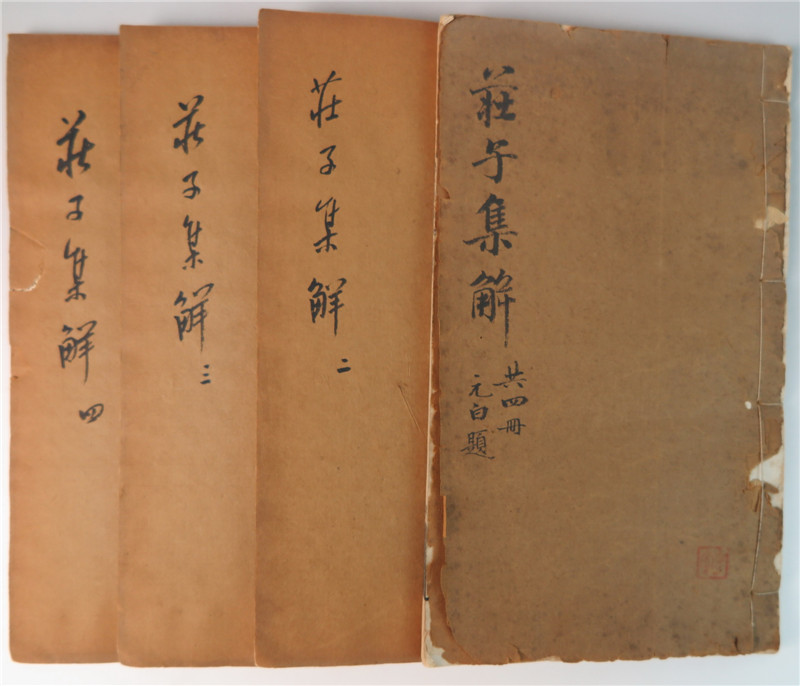 莊子集解
共四冊
元白題
莊子集解 二
莊子集解 三
莊子集解 四